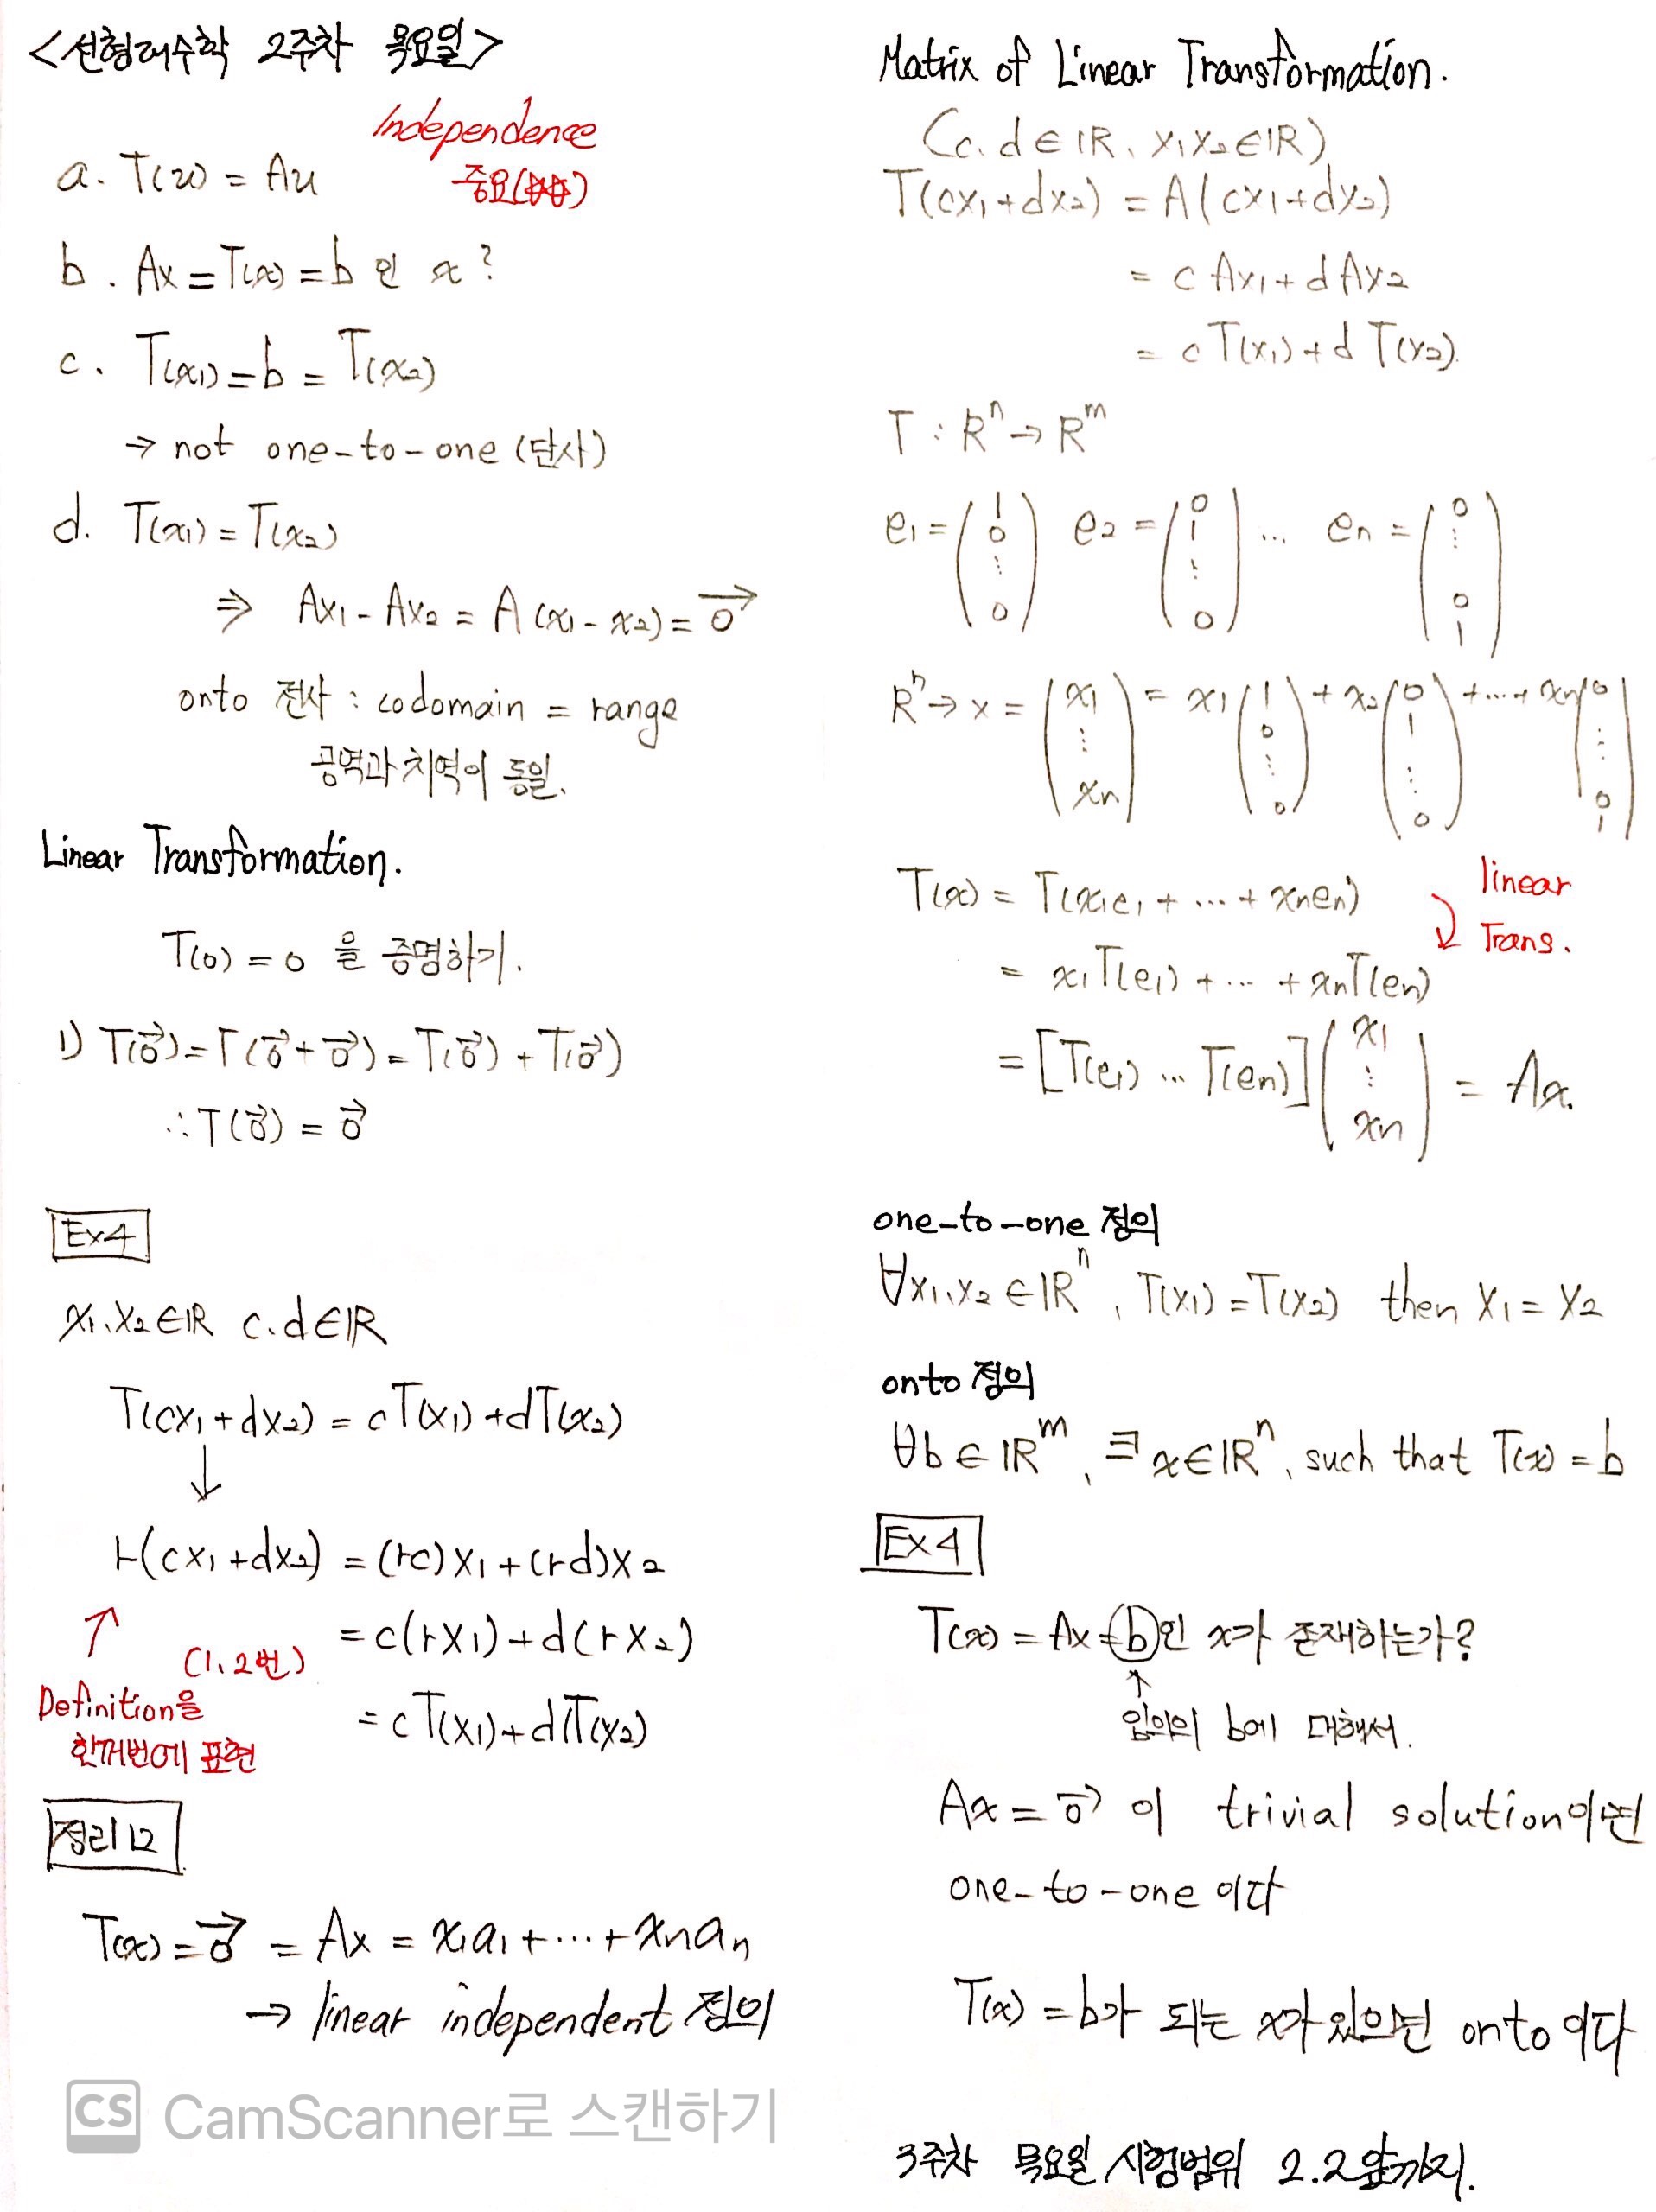 <선형대수학 2주차 목요일>
Independence
중요(☆☆)
a. T(u) = Au
b. Ax = T(x) = b 인 x?
c. T(x1) = b = T(x2)
→ not one-to-one (단사)
d. T(x1) = T(x2)
⇒ Ax1 - Ax2 = A(x1 - x2) = 0→
onto 전사 : codomain = range
공역과 치역이 동일.
Linear Transformation.
T(0) = 0 을 증명하기.
1) T(0→) = T(0→ + 0→) = T(0→) + T(0→)
∴ T(0→) = 0→
Ex4
x1, x2 ∈ ℝ c, d ∈ ℝ
T(cx1 + dx2) = cT(x1) + dT(x2)
↓
r(cx1 + dx2) = (rc)x1 + (rd)x2
= c(rx1) + d(rx2)
= cT(x1) + dT(x2)
↑
(1, 2번)
Definition을
한꺼번에 표현
정리 12
T(x) = 0→ = Ax = x1a1 + ··· + xnan
→ linear independent 정의
CS CamScanner로 스캔하기
Matrix of Linear Transformation.
(c, d ∈ ℝ, x1 x2 ∈ ℝ)
T(cx1 + dx2) = A(cx1 + dx2)
= c Ax1 + d Ax2
= c T(x1) + d T(x2).
T : R^n → R^m
e1 = (1 0 ⋮ 0) e2 = (0 1 ⋮ 0) ... en = (0 ⋮ 0 1)
R^n → x = (x1 ⋮ xn) = x1(1 0 ⋮ 0) + x2(0 1 ⋮ 0) + ··· + xn(0 ⋮ 0 1)
T(x) = T(x1e1 + ··· + xnen)
linear
Trans.
= x1T(e1) + ··· + xnT(en)
= [T(e1) ... T(en)](x1 ⋮ xn) = Ax.
one-to-one 정의
∀x1, x2 ∈ ℝ^n, T(x1) = T(x2) then x1 = x2
onto 정의
∀b ∈ ℝ^m, ∃x ∈ ℝ^n, such that T(x) = b
Ex4
T(x) = Ax = b인 x가 존재하는가?
↑
임의의 b에 대해서.
Ax = 0→ 이 trivial solution이면
one-to-one 이다
T(x) = b가 되는 x가 있으면 onto 이다
3주차 목요일 시험범위 2.2 앞까지.